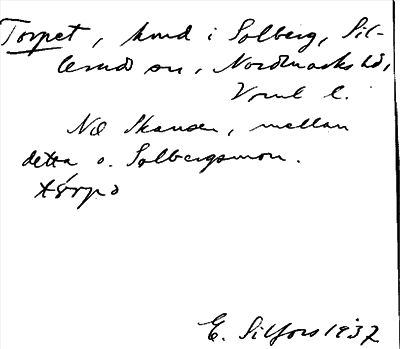 Torpet, hmd i Solberg, Sil-
lerud sn, Nordmarks hd,
Vrml l.
NO Skansen, mellan
detta o. Solbergsmon.
tórpə
E. Silfors 1937